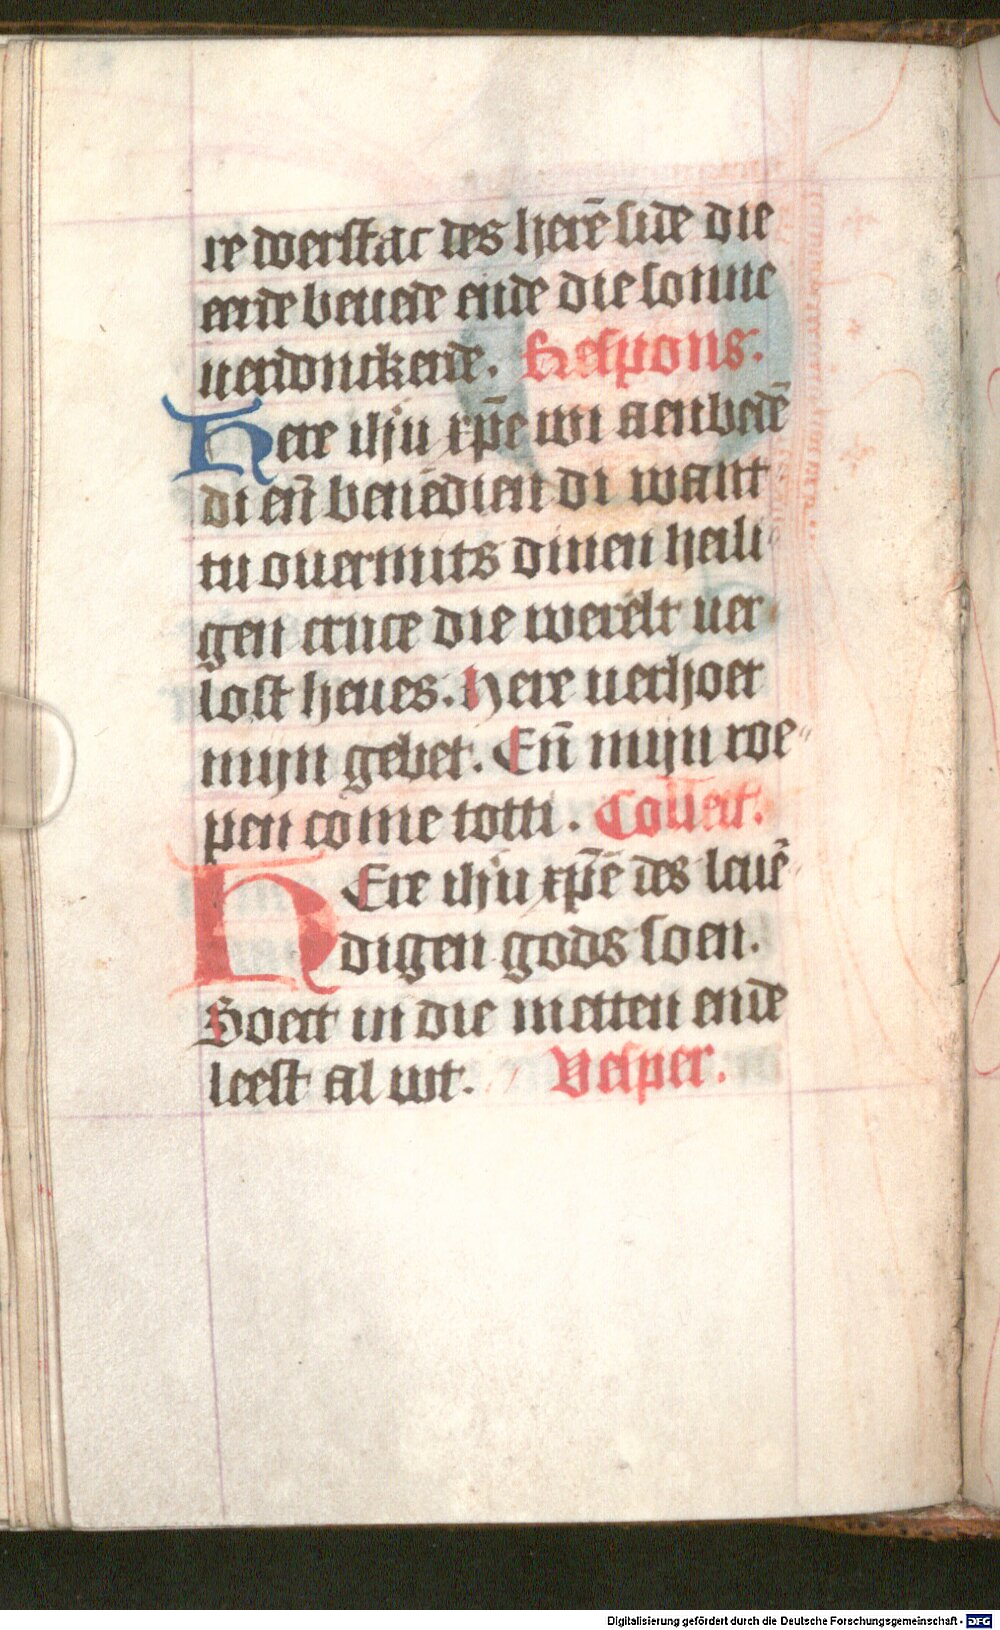 re doerstac des herē side die
eerde beuede ende die sonne
uerdonckerde. Respons.
Here ihū xp̄e wi aenbedē
di en̄ benēdien di want
tu ouermits dinen heili
gen cruce die werelt uer
lost heues. Here uerhoet
mijn gebet. En̄ mijn roe-
pen come totti. Collect.
HEre ihū xp̄e des leuē
digen gods soen.
Soect in die metten ende
leest al wt. Vesper.
Digitalisierung gefördert durch die Deutsche Forschungsgemeinschaft - DFG